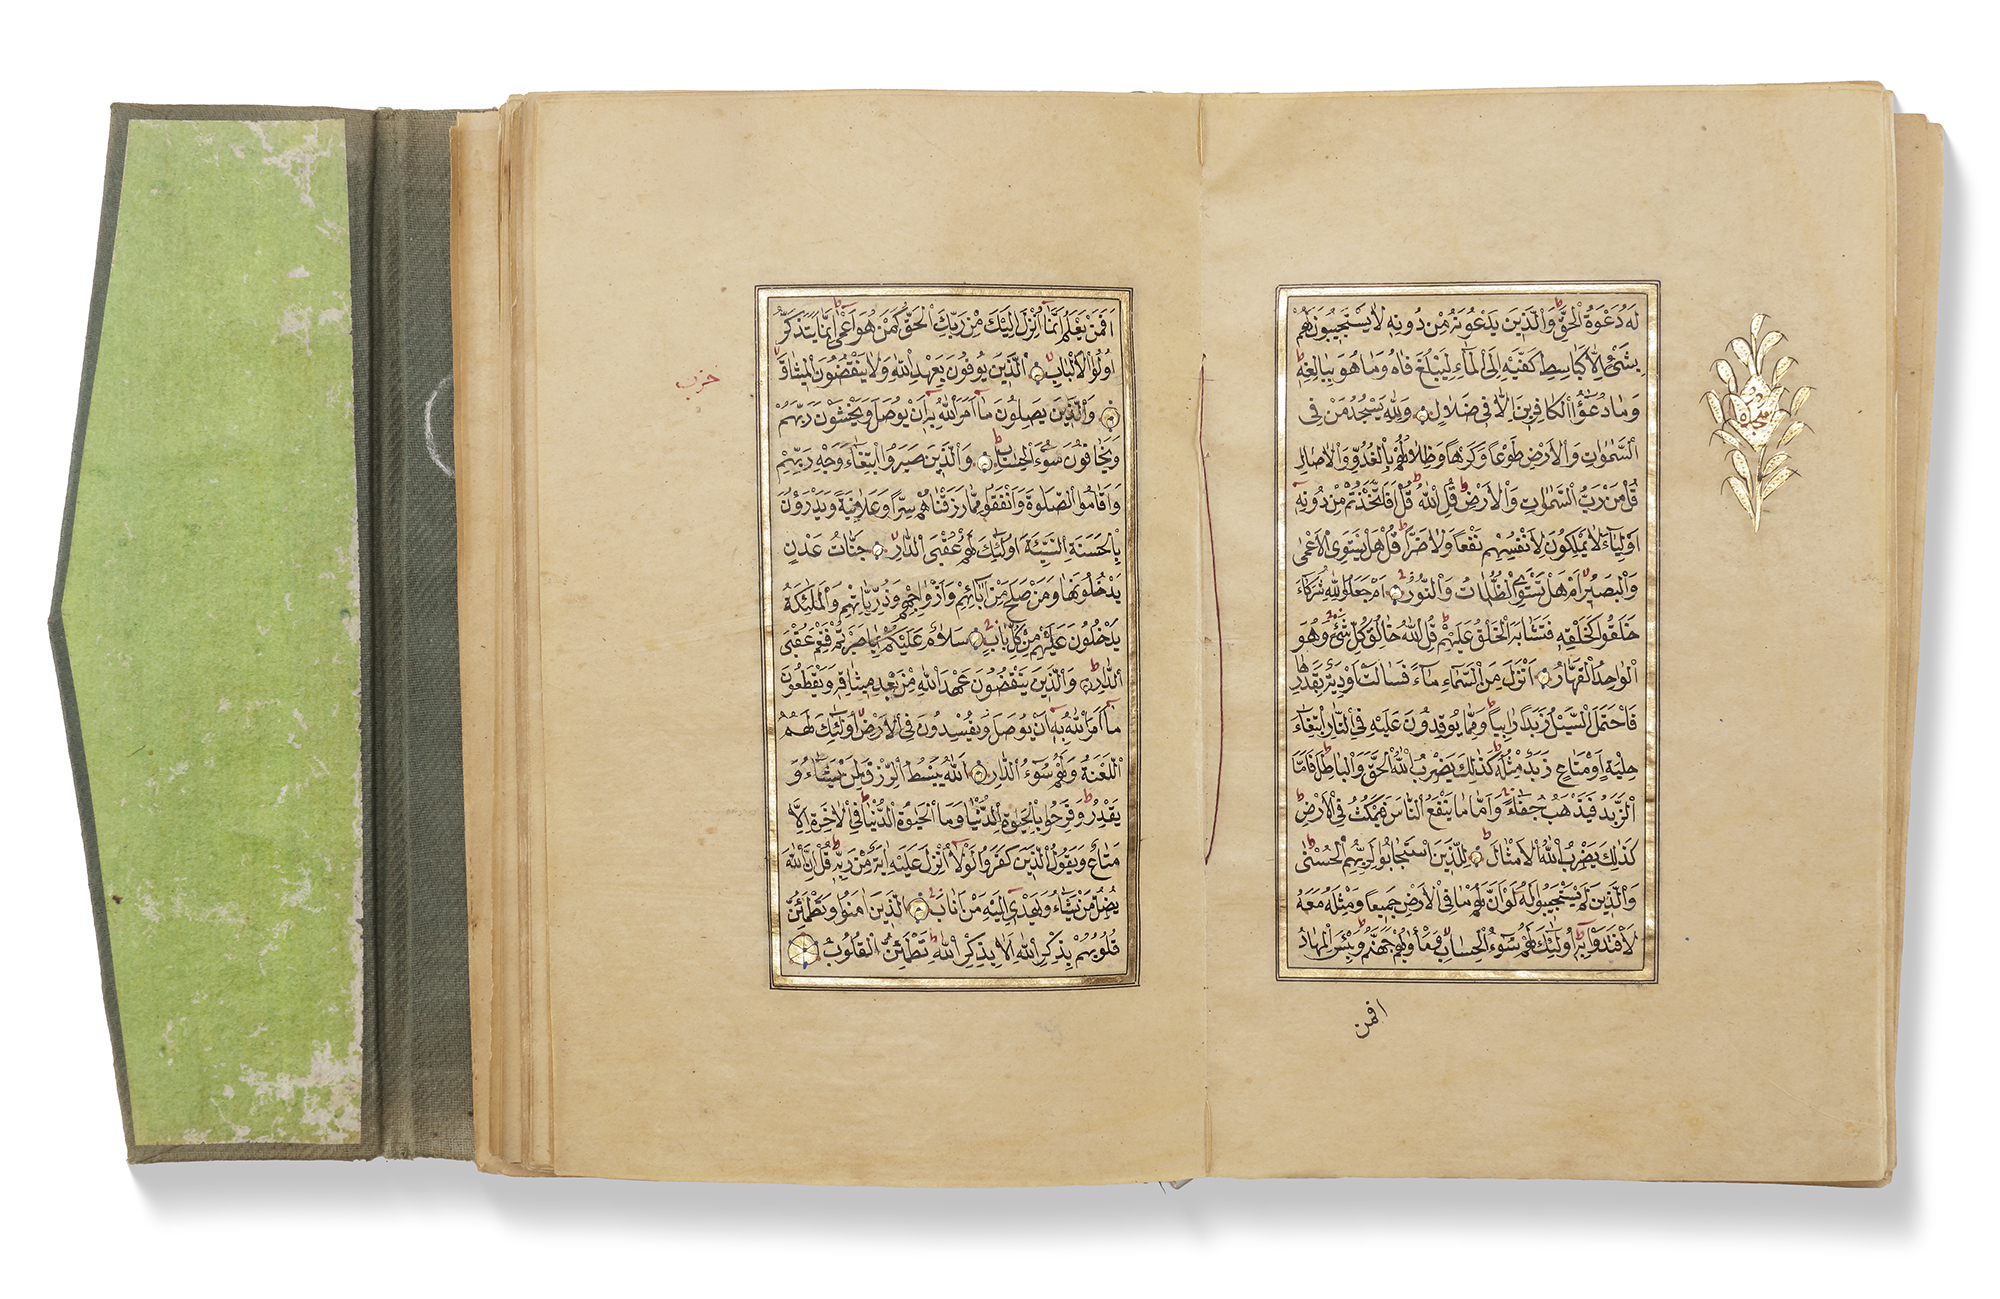 لَهُ دَعْوَةُ الْحَقِّ وَالَّذِينَ يَدْعُونَ مِنْ دُونِهِ لَا يَسْتَجِيبُونَ لَهُمْ
بِشَيْءٍ اِلَّا كَبَاسِطِ كَفَّيْهِ اِلَى الْمَاءِ لِيَبْلُغَ فَاهُ وَمَا هُوَ بِبَالِغِهِ
وَمَا دُعٰٓؤُا الْكَافِرِينَ اِلَّا فِى ضَلَالٍ وَلِلّٰهِ يَسْجُدُ مَنْ فِى
السَّمٰوَاتِ وَالْاَرْضِ طَوْعًا وَكَرْهًا وَظِلَالُهُمْ بِالْغُدُوِّ وَالْاٰصَالِ
سجده
قُلْ مَنْ رَبُّ السَّمٰوَاتِ وَالْاَرْضِ قُلِ اللّٰهُ قُلْ اَفَاتَّخَذْتُمْ مِنْ دُونِهِ
اَوْلِيَاءَ لَا يَمْلِكُونَ لِاَنْفُسِهِمْ نَفْعًا وَلَا ضَرًّا قُلْ هَلْ يَسْتَوِى الْاَعْمٰى
وَالْبَصِيرُ اَمْ هَلْ تَسْتَوِى الظُّلُمَاتُ وَالنُّورُ اَمْ جَعَلُوا لِلّٰهِ شُرَكَاءَ
خَلَقُوا كَخَلْقِهِ فَتَشَابَهَ الْخَلْقُ عَلَيْهِمْ قُلِ اللّٰهُ خَالِقُ كُلِّ شَيْءٍ وَهُوَ
الْوَاحِدُ الْقَهَّارُ اَنْزَلَ مِنَ السَّمَاءِ مَاءً فَسَالَتْ اَوْدِيَةٌ بِقَدَرِهَا
فَاحْتَمَلَ السَّيْلُ زَبَدًا رَابِيًا وَمِمَّا يُوقِدُونَ عَلَيْهِ فِى النَّارِ ابْتِغَاءَ
حِلْيَةٍ اَوْ مَتَاعٍ زَبَدٌ مِثْلُهُ كَذٰلِكَ يَضْرِبُ اللّٰهُ الْحَقَّ وَالْبَاطِلَ فَاَمَّا
الزَّبَدُ فَيَذْهَبُ جُفَاءً وَاَمَّا مَا يَنْفَعُ النَّاسَ فَيَمْكُثُ فِى الْاَرْضِ
كَذٰلِكَ يَضْرِبُ اللّٰهُ الْاَمْثَالَ لِلَّذِينَ اسْتَجَابُوا لِرَبِّهِمُ الْحُسْنٰى
وَالَّذِينَ لَمْ يَسْتَجِيبُوا لَهُ لَوْ اَنَّ لَهُمْ مَا فِى الْاَرْضِ جَمِيعًا وَمِثْلَهُ مَعَهُ
لَافْتَدَوْا بِهِ اُولٰئِكَ لَهُمْ سُوءُ الْحِسَابِ وَمَأْوٰيهُمْ جَهَنَّمُ وَبِئْسَ الْمِهَادُ
افمن
اَفَمَنْ يَعْلَمُ اَنَّمَا اُنْزِلَ اِلَيْكَ مِنْ رَبِّكَ الْحَقُّ كَمَنْ هُوَ اَعْمٰى اِنَّمَا يَتَذَكَّرُ
اُولُوا الْاَلْبَابِ الَّذِينَ يُوفُونَ بِعَهْدِ اللّٰهِ وَلَا يَنْقُضُونَ الْمِيثَاقَ
حزب
وَالَّذِينَ يَصِلُونَ مَا اَمَرَ اللّٰهُ بِهِ اَنْ يُوصَلَ وَيَخْشَوْنَ رَبَّهُمْ
وَيَخَافُونَ سُوءَ الْحِسَابِ وَالَّذِينَ صَبَرُوا ابْتِغَاءَ وَجْهِ رَبِّهِمْ
وَاَقَامُوا الصَّلٰوةَ وَاَنْفَقُوا مِمَّا رَزَقْنَاهُمْ سِرًّا وَعَلَانِيَةً وَيَدْرَؤُنَ
بِالْحَسَنَةِ السَّيِّئَةَ اُولٰئِكَ لَهُمْ عُقْبَى الدَّارِ جَنَّاتُ عَدْنٍ
يَدْخُلُونَهَا وَمَنْ صَلَحَ مِنْ اٰبَائِهِمْ وَاَزْوَاجِهِمْ وَذُرِّيَّاتِهِمْ وَالْمَلٰئِكَةُ
يَدْخُلُونَ عَلَيْهِمْ مِنْ كُلِّ بَابٍ سَلَامٌ عَلَيْكُمْ بِمَا صَبَرْتُمْ فَنِعْمَ عُقْبَى
الدَّارِ وَالَّذِينَ يَنْقُضُونَ عَهْدَ اللّٰهِ مِنْ بَعْدِ مِيثَاقِهِ وَيَقْطَعُونَ
مَا اَمَرَ اللّٰهُ بِهِ اَنْ يُوصَلَ وَيُفْسِدُونَ فِى الْاَرْضِ اُولٰئِكَ لَهُمُ
اللَّعْنَةُ وَلَهُمْ سُوءُ الدَّارِ اَللّٰهُ يَبْسُطُ الرِّزْقَ لِمَنْ يَشَاءُ وَ
يَقْدِرُ وَفَرِحُوا بِالْحَيٰوةِ الدُّنْيَا وَمَا الْحَيٰوةُ الدُّنْيَا فِى الْاٰخِرَةِ اِلَّا
مَتَاعٌ وَيَقُولُ الَّذِينَ كَفَرُوا لَوْلَا اُنْزِلَ عَلَيْهِ اٰيَةٌ مِنْ رَبِّهِ قُلْ اِنَّ اللّٰهَ
يُضِلُّ مَنْ يَشَاءُ وَيَهْدِى اِلَيْهِ مَنْ اَنَابَ الَّذِينَ اٰمَنُوا وَتَطْمَئِنُّ
قُلُوبُهُمْ بِذِكْرِ اللّٰهِ اَلَا بِذِكْرِ اللّٰهِ تَطْمَئِنُّ الْقُلُوبُ